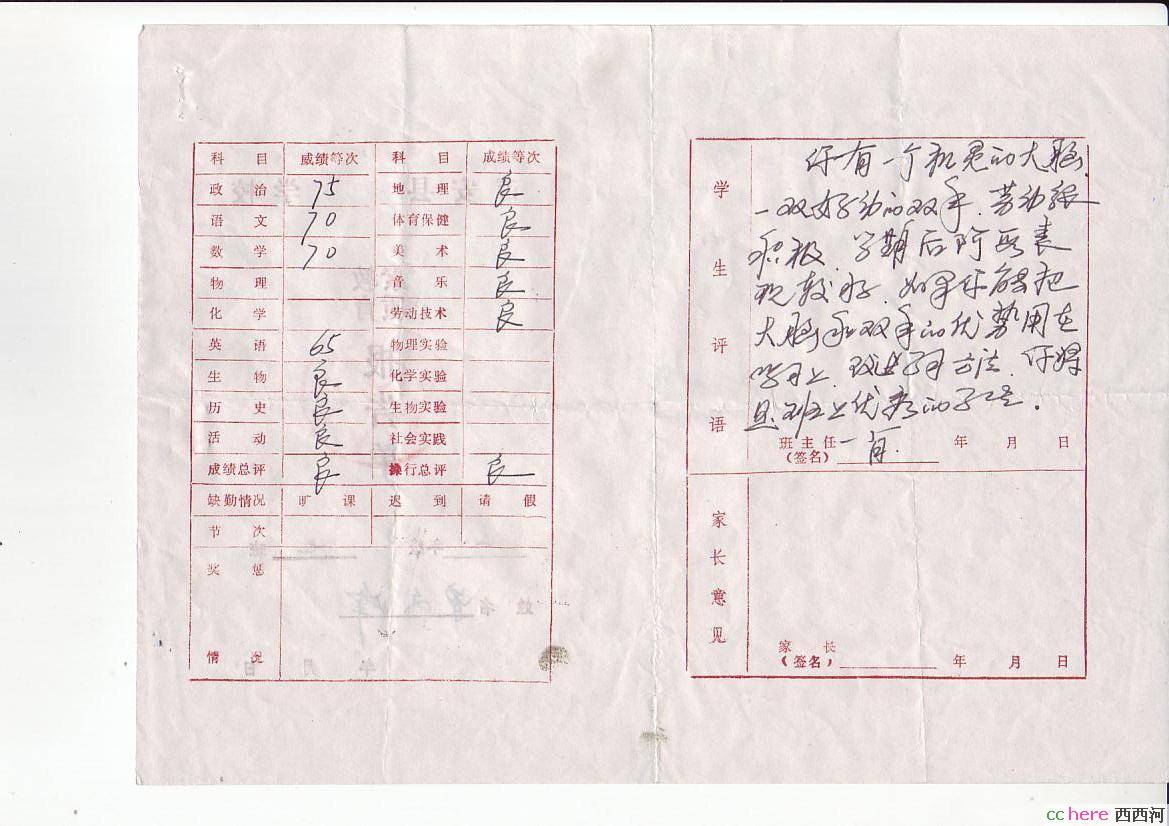 科 目 成绩等次 科 目 成绩等次
政 治 75 地 理 良
语 文 70 体育保健 良
数 学 70 美 术 良
物 理 音 乐 良
化 学 劳动技术 良
英 语 65 物理实验
生 物 良 化学实验
历 史 良 生物实验
活 动 良 社会实践
成绩总评 良 操行总评 良
缺勤情况 旷 课 迟 到 请 假
节 次
奖 惩
情 况
学生评语
你有一个机灵的大脑,
一双好动的双手.劳动很
积极.学期后阶段表
现较好.如果你能把
大脑和双手的优势用在
学习上.改进学习方法.你将
是班上优秀的学生.
班 主 任 年 月 日
(签名)
家长意见
家 长
(签名) 年 月 日
cchere 西西河